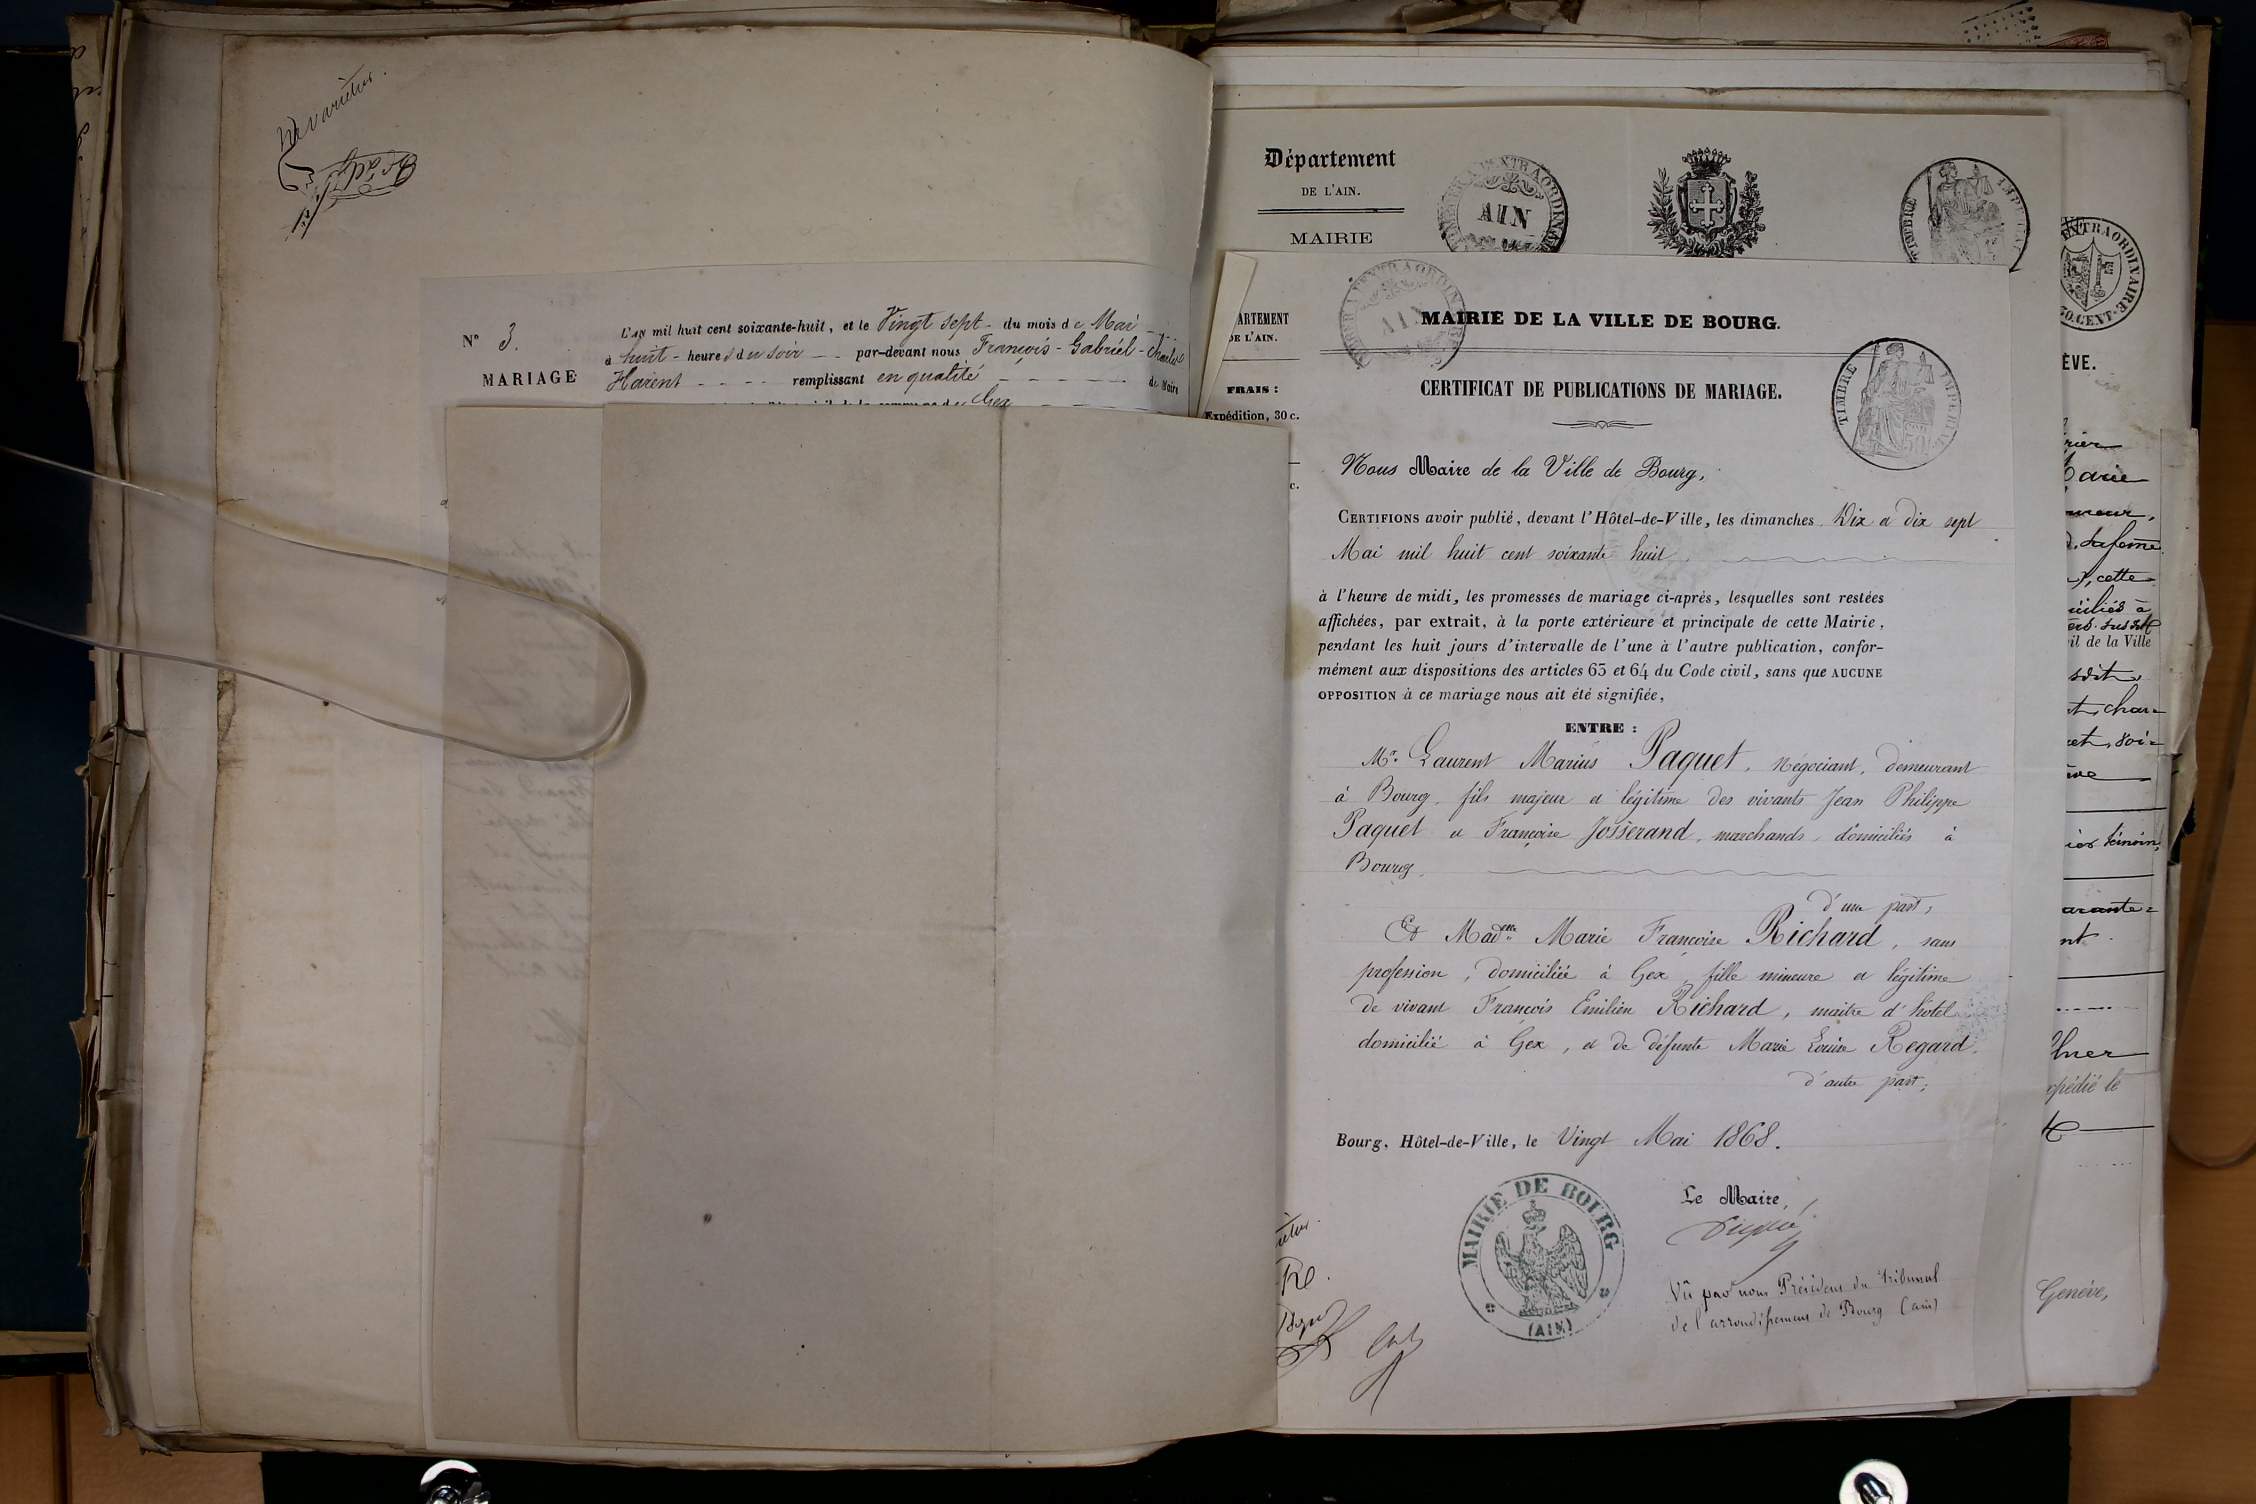 Ne varietur.
N° 3.
MARIAGE
L'AN mil huit cent soixante-huit, et le Vingt sept - du mois de Mai
à huit - heures du soir - - par-devant nous François - Gabriel - Charles
Harent - - - - remplissant en qualité - - - - - de Maire
Gex
Département
DE L'AIN.
MAIRIE
AIN
TIMBRE
ARTEMENT
DE L'AIN.
FRAIS :
Expédition, 30 c.
c.
AIN
MAIRIE DE LA VILLE DE BOURG.
CERTIFICAT DE PUBLICATIONS DE MARIAGE.
TIMBRE IMPERIAL
50
Nous Maire de la Ville de Bourg,
CERTIFIONS avoir publié, devant l'Hôtel-de-Ville, les dimanches Dix et dix sept
Mai mil huit cent soixante huit
à l'heure de midi, les promesses de mariage ci-après, lesquelles sont restées
affichées, par extrait, à la porte extérieure et principale de cette Mairie,
pendant les huit jours d'intervalle de l'une à l'autre publication, confor-
mément aux dispositions des articles 63 et 64 du Code civil, sans que AUCUNE
OPPOSITION à ce mariage nous ait été signifiée,
ENTRE :
Mr. Laurent Marius Paquet, Négociant, demeurant
à Bourg, fils majeur et légitime des vivants Jean Philippe
Paquet et Françoise Josserand, marchands, domiciliés à
Bourg,
d'une part,
Et Madlle Marie Françoise Richard, sans
profession, domiciliée à Gex, fille mineure et légitime
de vivant François Emilien Richard, maitre d'hôtel
domicilié à Gex, et de défunte Marie Louise Regard.
d'autre part;
Bourg, Hôtel-de-Ville, le Vingt Mai 1868.
Le Maire,
MAIRIE DE BOURG
(AIN)
Vû par nous Président du Tribunal
de l'arrondissement de Bourg (ain)
EXTRAORDINAIRE
50.CENT.
ÈVE.
Marie
sa femme
cette
il de la Ville
sdit
char=
soi=
témoin,
nt.
Genève,